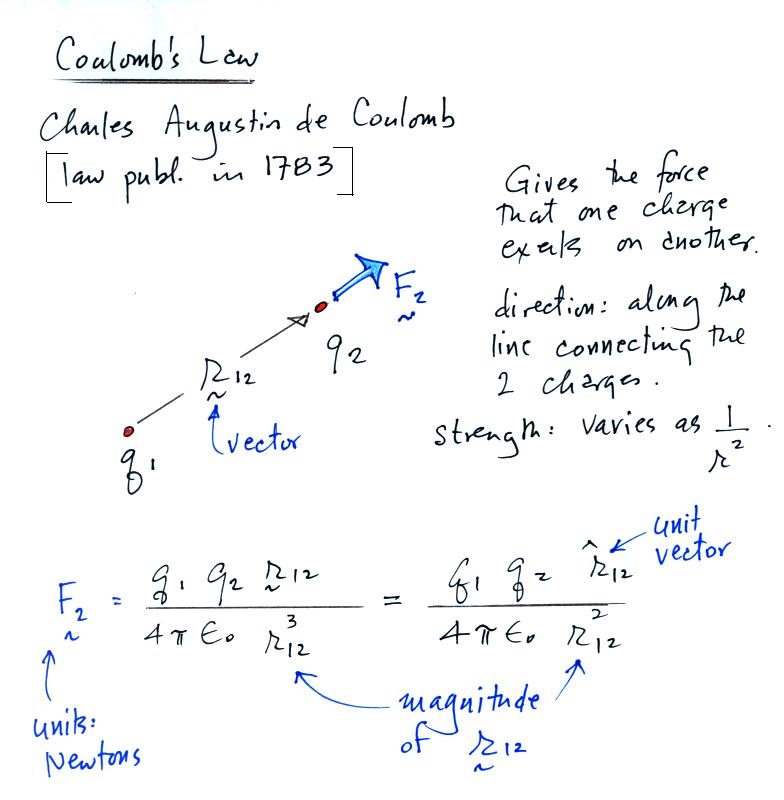 Coulomb's Law
Charles Augustin de Coulomb
[law publ. in 1783]
Gives the force
that one charge
exerts on another.
direction: along the
line connecting the
2 charges.
strength: varies as 1/r².
F₂
q₂
r₁₂
vector
q₁
unit
vector
F₂ = q₁ q₂ r₁₂ / 4π ε₀ r₁₂³ = q₁ q₂ r̂₁₂ / 4π ε₀ r₁₂²
units:
Newtons
magnitude
of r₁₂